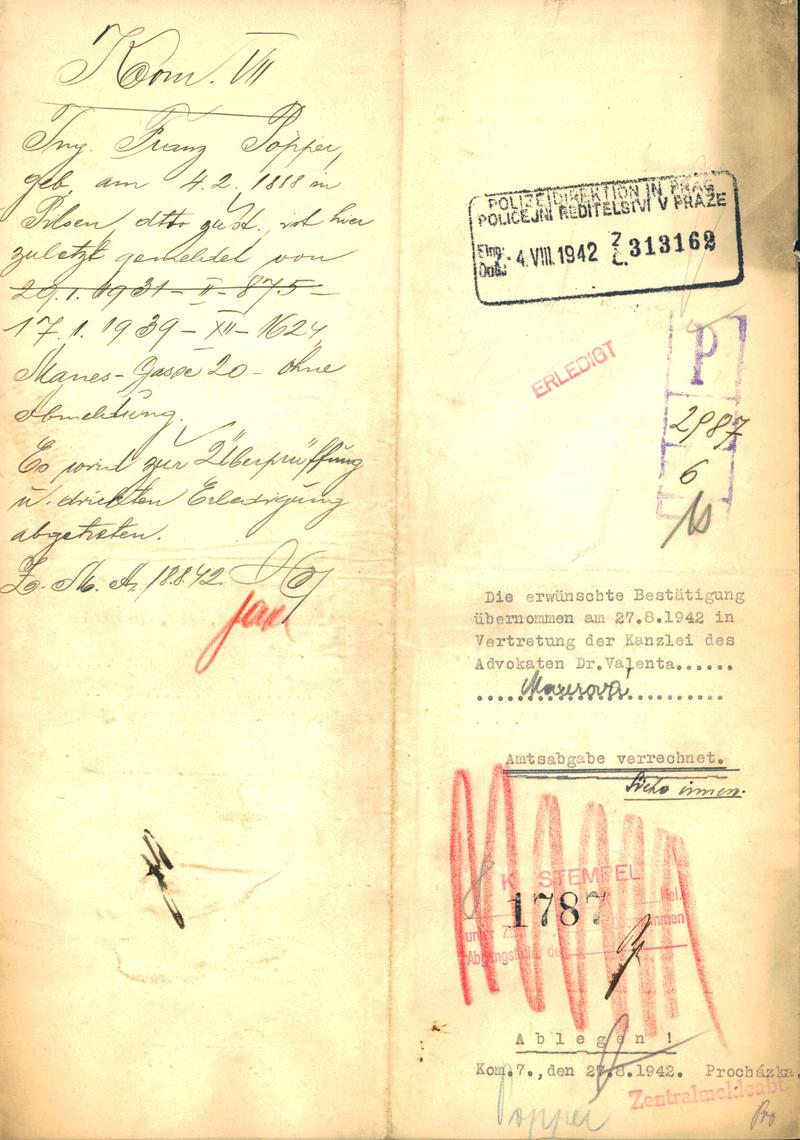 Kom. VII
Ing. Franz Popper,
geb. am 4.2. 1888 in
Pilsen, dtto zust., ist hier
zuletzt gemeldet von
29.1. 1931 – II – 875 –
17.1. 1939 – XII – 1624,
Manes-Gasse 20 – ohne
Abmeldung.
Es wird zur Überprüffung
u. direkten Erledigung
abgetreten.
Z. M. A. 18.8.42.
POLIZEIDIREKTION IN PRAG
POLICEJNÍ ŘEDITELSTVÍ V PRAZE
Eing.
Došl.
- 4. VIII. 1942
Z
Č. 313162
ERLEDIGT
P
2987
6
Die erwünschte Bestätigung
übernommen am 27.8.1942 in
Vertretung der Kanzlei des
Advokaten Dr.Valenta......
Mazerová
Amtsabgabe verrechnet.
Siehe innen.
8 K STEMPEL
1787
unter
A b l e g e n !
Kom.7.,den 27.8.1942. Procházka.
Zentralmeldeabt
Popper
Pro